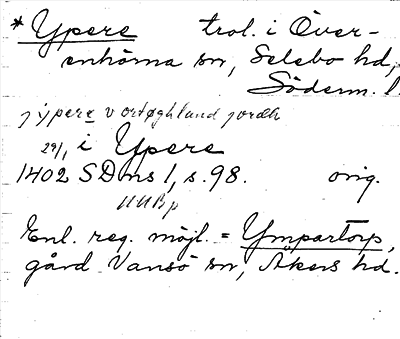 * Ypere trol. i Över-
enhörna sn, Selebo hd,
Söderm. l.
j ypere v ortøghland jordh
29/1 i Ypere
1402 SDns 1, s. 98. orig.
Enl. reg. möjl. = Ympartorp,
gård Vansö sn, Åkers hd.